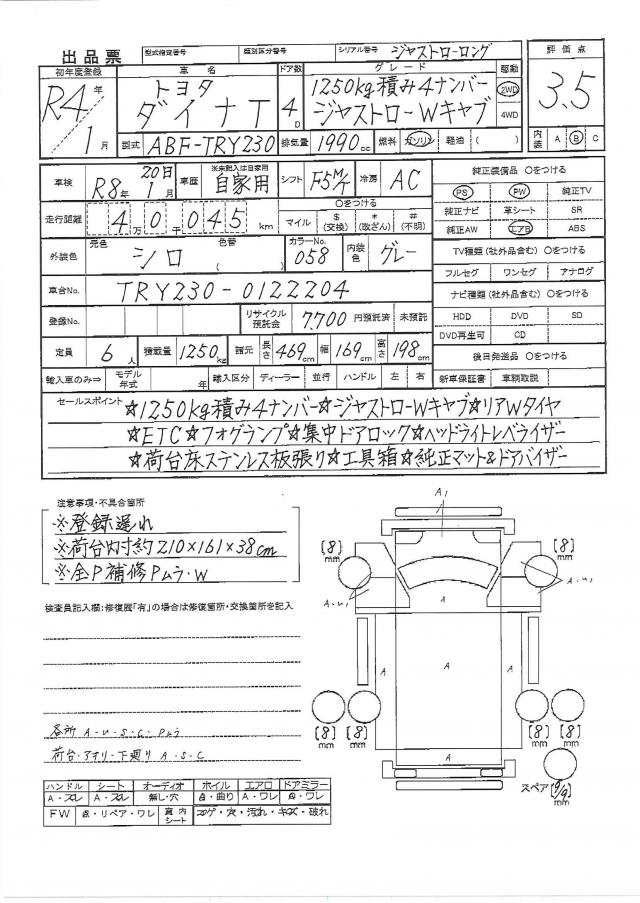 出品票 型式指定番号 類別区分番号 シリアル番号 ジャストローロング
初年度登録 車名 ドア数 グレード 駆動 評価点
R4年 トヨタ 4D 1250kg積み4ナンバー 2WD 3.5
1月 ダイナT ジャストローWキャブ 4WD
型式 ABF-TRY230 排気量 1990cc 燃料 ガソリン 軽油 ( ) 内装 A B C
車検 R8年 20日 1月 車歴 ※未記入は自家用 自家用 シフト F5M/T 冷房 AC 純正装備品 〇をつける
PS PW 純正TV
走行距離 4万0千045km 〇をつける
マイル $(交換) *(改ざん) #(不明)
純正ナビ 革シート SR
純正AW エアB ABS
外装色 元色 シロ 色替 ( ) カラーNo. 058 内装色 グレー
TV種類(社外品含む) 〇をつける
フルセグ ワンセグ アナログ
車台No. TRY230-0122204
ナビ種類(社外品含む) 〇をつける
登録No. リサイクル預託金 7,700 円預託済 未預託
HDD DVD SD
DVD再生可 CD
定員 6人 積載量 1250kg 諸元 長さ 469cm 幅 169cm 高さ 198cm
後日発送品 〇をつける
輸入車のみ⇒ モデル年式 年 輸入区分 ディーラー 並行 ハンドル 左 右
新車保証書 車輌取説
セールスポイント ☆1250kg積み4ナンバー☆ジャストローWキャブ☆リアWタイヤ
☆ETC☆フォグランプ☆集中ドアロック☆ヘッドライトレベライザー
☆荷台床ステンレス板張り☆工具箱☆純正マット&ドアバイザー
注意事項・不具合箇所
※登録遅れ
※荷台内寸約210×161×38cm
※全P補修Pムラ・W
検査員記入欄:修復歴「有」の場合は修復箇所・交換箇所を記入
各所 A・U・S・C・Pムラ
荷台・アオリ・下廻り A・S・C
A1
[8]mm [8]mm
A・U1 A・U1
A
A A A
[8]mm [8]mm [8]mm [8]mm
A
スペア [9/9]mm
ハンドル シート オーディオ ホイル エアロ ドアミラー
A・スレ A・スレ 無し・穴 A・曲り A・ワレ A・ワレ
FW A・リペア・ワレ 室内シート コゲ・穴・汚れ・キズ・破れ